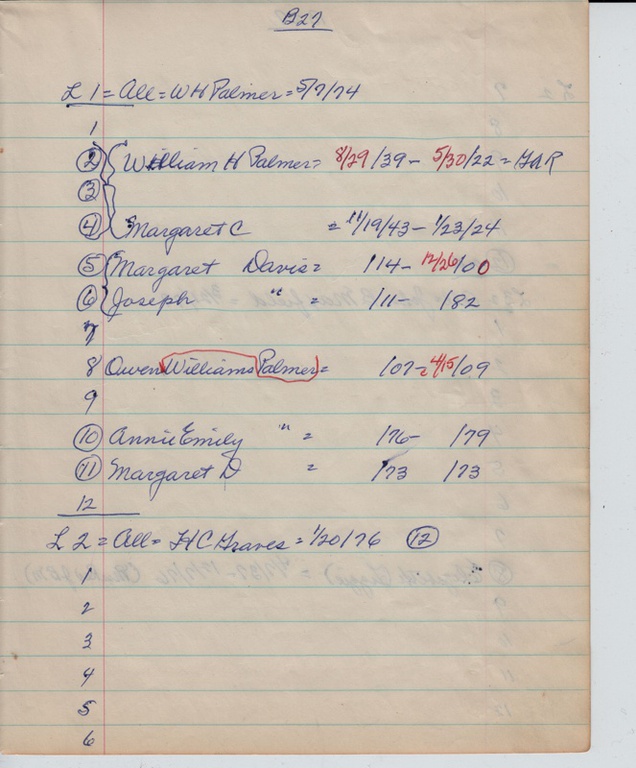 B27
L 1 = All = W H Palmer = 5/7/74
1
2 William H Palmer = 8/29/39 - 5/30/22 = GAR
3
4 Margaret C = 11/19/43 - 1/23/24
5 Margaret Davis = /14 - 12/26/00
6 Joseph " = /11 - /82
7
8 Owen Williams Palmer = /07 - 4/15/09
9
10 Annie Emily " = /76 - /79
11 Margaret D = /73 /73
12
L 2 = All = H C Graves = 1/20/76 12
1
2
3
4
5
6